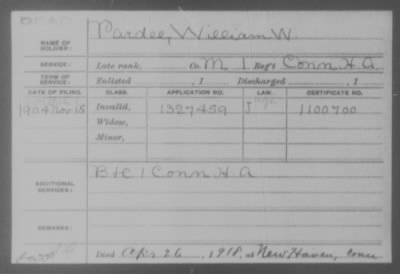 DEAD
NAME OF SOLDIER: Pardee, William W.
SERVICE: Late rank, Co. M 1 Reg't Conn H.A.
TERM OF SERVICE: Enlisted , 1 Discharged , 1
DATE OF FILING. CLASS. APPLICATION NO. LAW. CERTIFICATE NO.
1904 Nov 15 Invalid, 1327459 J 1100700
Widow,
Minor,
ADDITIONAL SERVICES: B & C 1 Conn H.A
REMARKS:
Died Apr 26, 1918, at New Haven, Conn